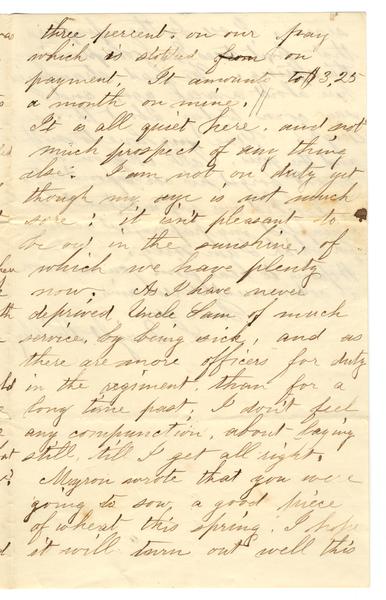 three percent. on our pay
which is stopped from on
payment. It amounts to $3,25
a month on mine. //
It is all quiet here, and not
much prospect of any thing
else. I am not on duty yet
though my eye is not much
sore; it isn't pleasant to
be out in the sunshine, of
which we have plenty
now. As I have never
deprived Uncle Sam of much
service, by being sick, and as
there are more officers for duty
in the regiment, than for a
long time past, I don't feel
any compunction, about laying
still, till I get all right.
Myron wrote that you were
going to sow a good piece
of wheat this spring. I hope
it will turn out well this